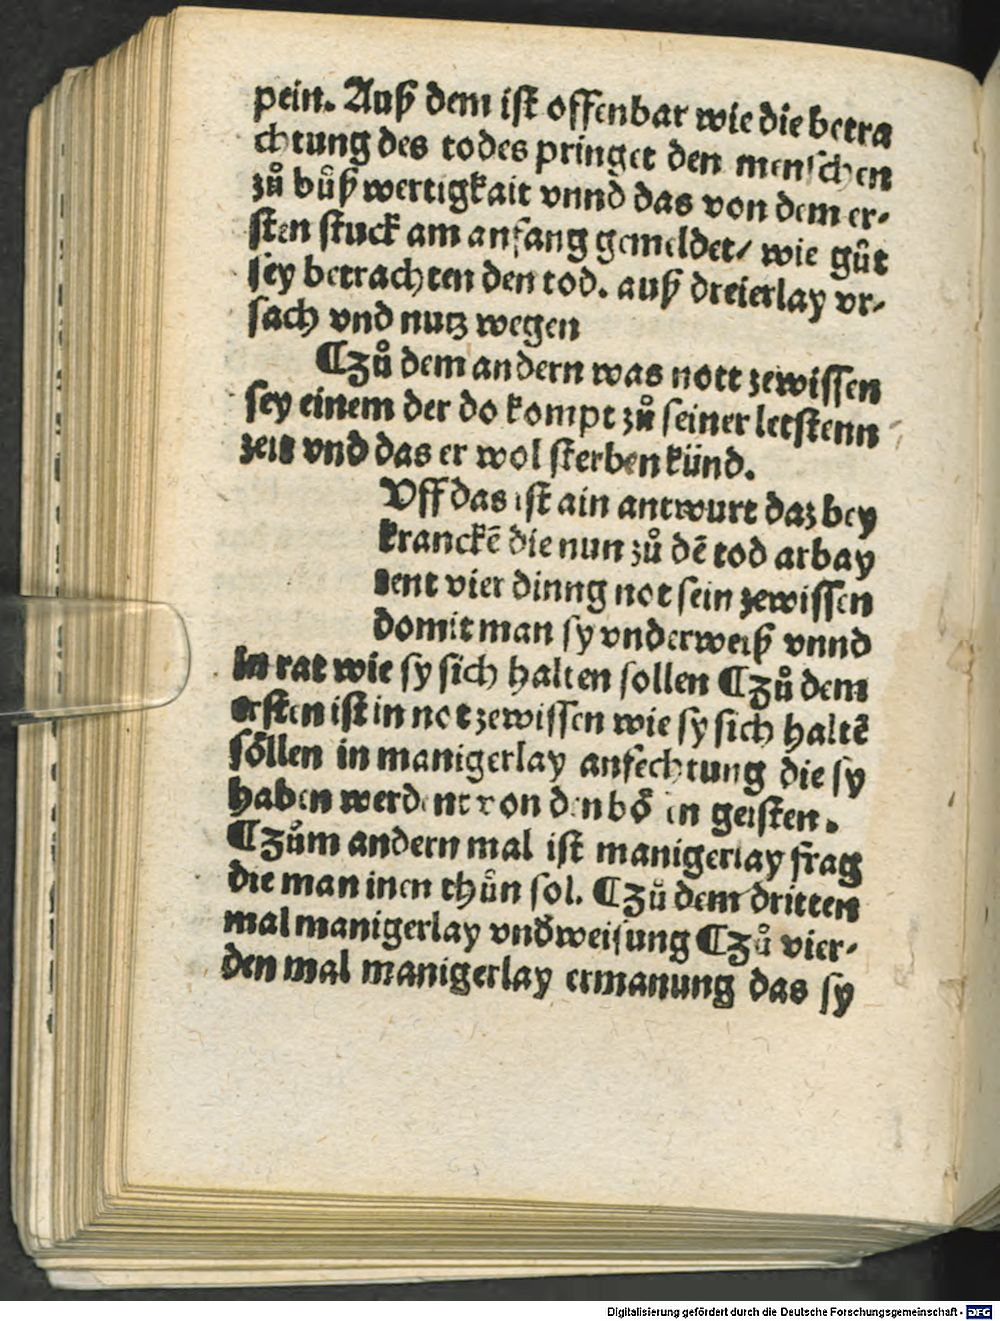 pein. Auß dem ist offenbar wie die betra
chtung des todes pringet den menschen
zů bůß wertigkait vnnd das von dem er-
sten stuck am anfang gemeldet/ wie gůt
sey betrachten den tod. auß dreierlay vr-
sach vnd nutz wegen
¶Zů dem andern was nott zewissen
sey einem der do kompt zů seiner letstenn
zeit vnd das er wol sterben künd.
Vff das ist ain antwurt daz bey
kranckē die nun zů dē tod arbay
tent vier dinng not sein zewissen
domit man sy vnderweiß vnnd
in rat wie sy sich halten sollen ¶Zů dem
ersten ist in not zewissen wie sy sich haltē
söllen in manigerlay anfechtung die sy
haben werdent von den bösen geisten.
¶Zům andern mal ist manigerlay frag
die man inen thůn sol. ¶Zů dem dritten
mal manigerlay vnd̄weisung ¶Zů vier-
den mal manigerlay ermanung das sy
Digitalisierung gefördert durch die Deutsche Forschungsgemeinschaft - DFG